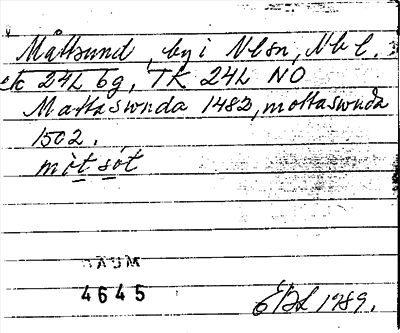 Måttsund, by i Nlsn, Nbl.
ek 24L 6g, TK 24L NO
Mattaswnda 1482, mottaswnda
1502.
mòt sót
DAUM
4645
EBL 1989.